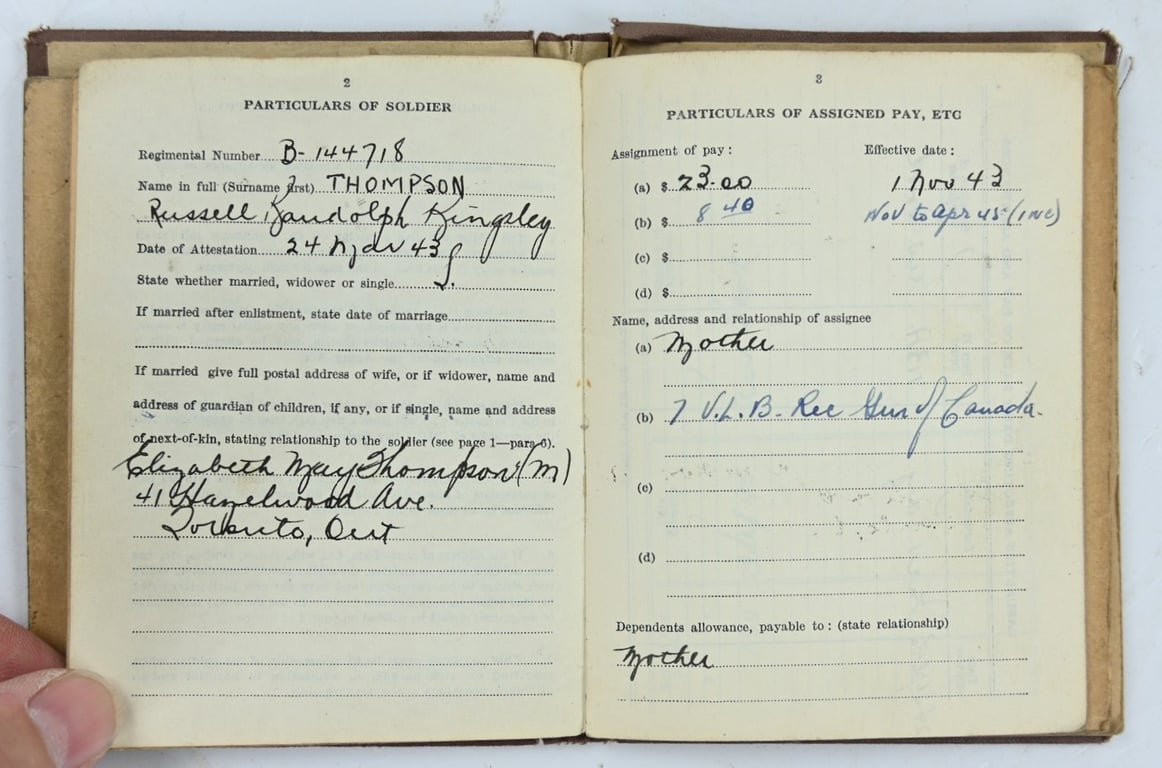 2
PARTICULARS OF SOLDIER
Regimental Number B-144718
Name in full (Surname first) THOMPSON
Russell Randolph Kingsley
Date of Attestation 24 Mar 43
State whether married, widower or single S.
If married after enlistment, state date of marriage
If married give full postal address of wife, or if widower, name and
address of guardian of children, if any, or if single, name and address
of next-of-kin, stating relationship to the soldier (see page 1—para 6).
Elizabeth May Thompson (M)
41 Hazelwood Ave.
Toronto, Ont
3
PARTICULARS OF ASSIGNED PAY, ETC
Assignment of pay: Effective date:
(a) $ 23.00 1 Nov 43
(b) $ 8 40 Nov to Apr 45 (INC)
(c) $
(d) $
Name, address and relationship of assignee
(a) Mother
(b) 7 V.L.B- Rec Gen of Canada.
(c)
(d)
Dependents allowance, payable to: (state relationship)
Mother